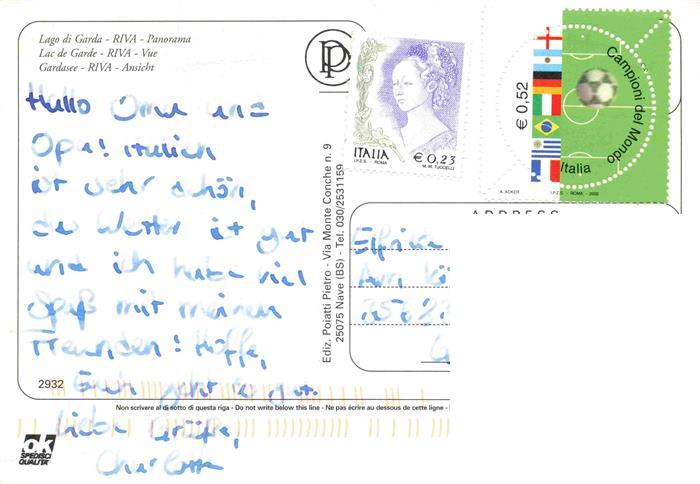 Lago di Garda - RIVA - Panorama
Lac de Garde - RIVA - Vue
Gardasee - RIVA - Ansicht
Hallo Oma und
Opa! Italien
ist sehr schön,
das Wetter ist gut
und ich habe viel
Spaß mit meinen
Freunden! Hoffe,
Euch geht es gut.
Liebe Grüße,
Charlotte
2932
Non scrivere al di sotto di questa riga - Do not write below this line - Ne pas écrire au dessous de cette ligne -
ok
SPEDISCI
QUALITÀ
Ediz. Poiatti Pietro - Via Monte Conche n. 9
25075 Nave (BS) - Tel. 030/2531159
ITALIA
€ 0,23
I.P.Z.S. - ROMA
M. M. TUCCELLI
€ 0,52
Campioni del Mondo
Italia
A. ACKER
I.P.Z.S. - ROMA - 2002
ADDRESS
Am